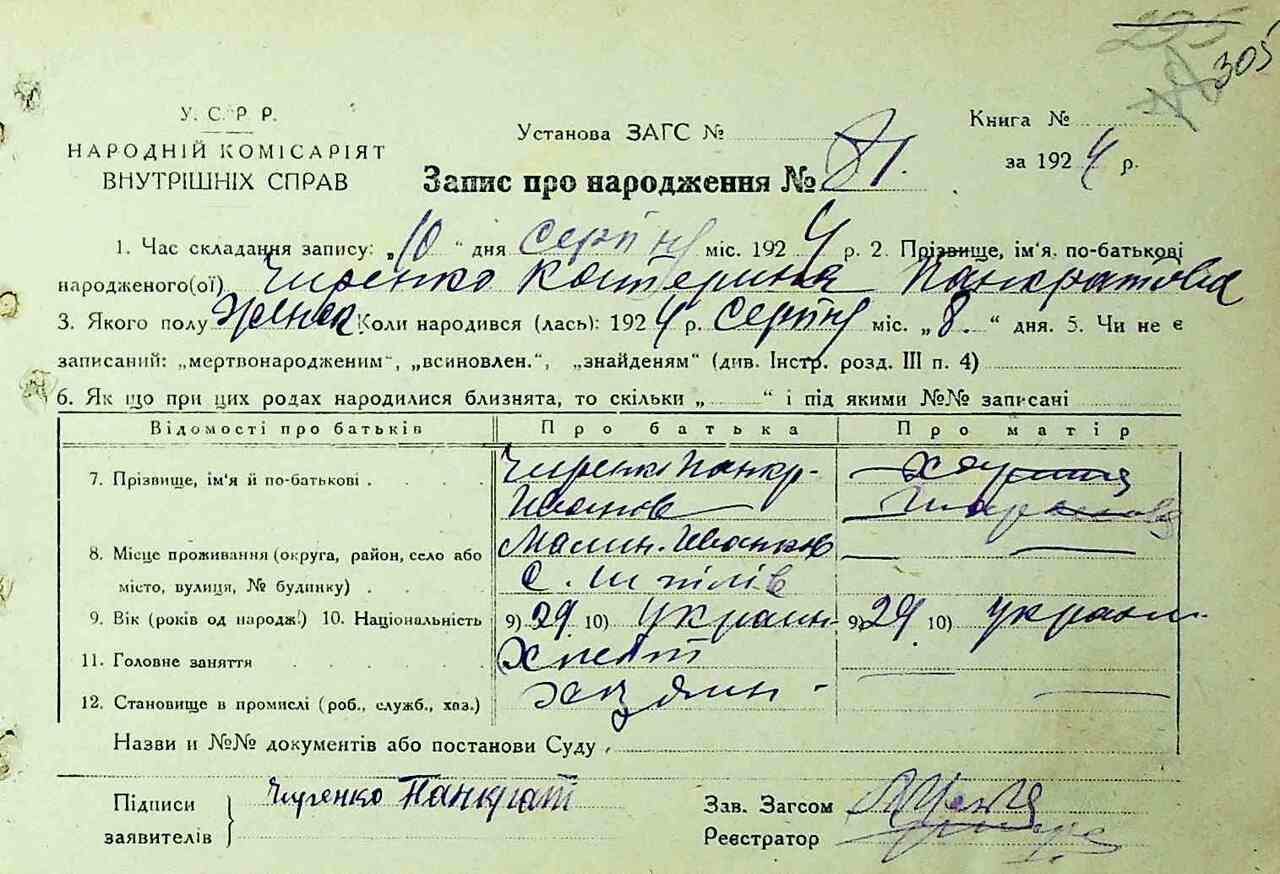 305
У. С. Р. Р.
НАРОДНІЙ КОМІСАРІЯТ
ВНУТРІШНІХ СПРАВ
Установа ЗАГС №
Книга №
за 1924 р.
Запис про народження № 81.
1. Час складання запису: „10“ дня серпня міс. 1924 р. 2. Прізвище, ім'я, по-батькові
народженого(ої) Чиренко Катерина Панкратовна
3. Якого полу Женск Коли народився (лась): 1924 р. серпня міс. „8.“ дня. 5. Чи не є
записаний: „мертвонародженим“, „всиновлен.“, „знайденям“ (див. Інстр. розд. III п. 4)
6. Як що при цих родах народилися близнята, то скільки „ “ і під якими №№ записані
Відомості про батьків Про батька Про матір
7. Прізвище, ім'я й по-батькові Чиренко Панкр-
Иванов
8. Місце проживання (округа, район, село або Малин. Іванков
місто, вулиця, № будинку) с. Шпілів
9. Вік (років од народж.) 10. Національність 9) 29 10) украин- 9) 29 10) украин-
11. Головне заняття Хліб
12. Становище в промислі (роб., служб., хаз.) хазяин-
Назви и №№ документів або постанови Суду
Підписи
заявителів
Чиренко Панкрат
Зав. Загсом
Реєстратор